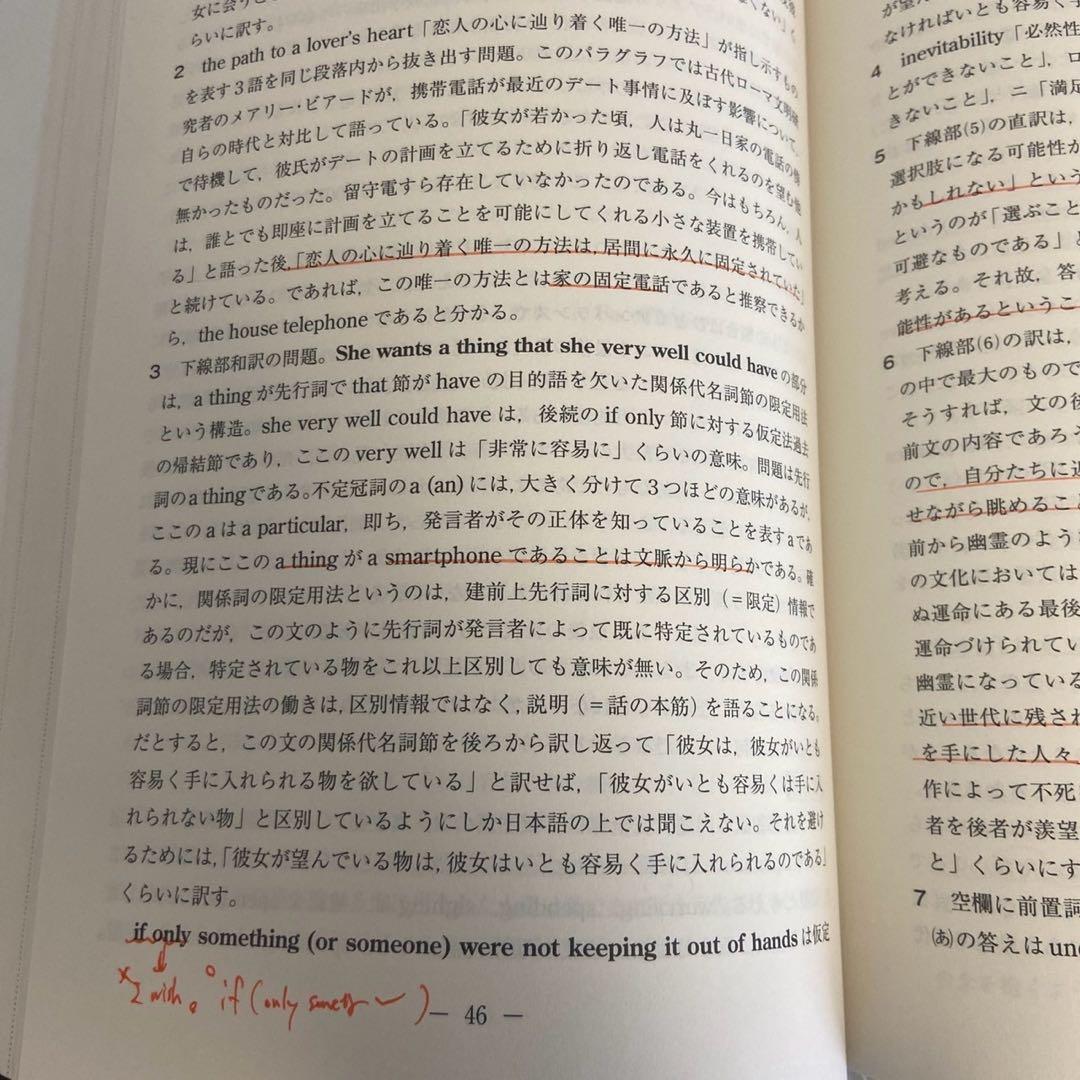 女に会うこ
らいに訳す。
2 the path to a lover's heart「恋人の心に辿り着く唯一の方法」が指し示すもの
を表す3語を同じ段落内から抜き出す問題。このパラグラフでは古代ローマ文明研
究者のメアリー・ビアードが，携帯電話が最近のデート事情に及ぼす影響について，
自らの時代と対比して語っている。「彼女が若かった頃，人は丸一日家の電話の傍
で待機して，彼氏がデートの計画を立てるために折り返し電話をくれるのを望む他
無かったものだった。留守電すら存在していなかったのである。今はもちろん，人
は，誰とでも即座に計画を立てることを可能にしてくれる小さな装置を携帯してい
る」と語った後，「恋人の心に辿り着く唯一の方法は，居間に永久に固定されていた」
と続けている。であれば，この唯一の方法とは家の固定電話であると推察できるか
ら，the house telephone であると分かる。
3 下線部和訳の問題。She wants a thing that she very well could have の部分
は，a thing が先行詞で that 節が have の目的語を欠いた関係代名詞節の限定用法
という構造。she very well could have は，後続の if only 節に対する仮定法過去
の帰結節であり，ここの very well は「非常に容易に」くらいの意味。問題は先行
詞の a thing である。不定冠詞の a (an) には，大きく分けて3つほどの意味があるが，
ここの a は a particular，即ち，発言者がその正体を知っていることを表す a であ
る。現にここの a thing が a smartphone であることは文脈から明らかである。確
かに，関係詞の限定用法というのは，建前上先行詞に対する区別（＝限定）情報で
あるのだが，この文のように先行詞が発言者によって既に特定されているものであ
る場合，特定されている物をこれ以上区別しても意味が無い。そのため，この関係
詞節の限定用法の働きは，区別情報ではなく，説明（＝話の本筋）を語ることになる。
だとすると，この文の関係代名詞節を後ろから訳し返って「彼女は，彼女がいとも
容易く手に入れられる物を欲している」と訳せば，「彼女がいとも容易くは手に入
れられない物」と区別しているようにしか日本語の上では聞こえない。それを避け
るためには，「彼女が望んでいる物は，彼女はいとも容易く手に入れられるのである」
くらいに訳す。
if only something (or someone) were not keeping it out of hands は仮定
×I wish。 if (only
— 46 —
なければいとも容易く手
4 inevitability「必然性
とができないこと」，ロ
きないこと」，ニ「満足
5 下線部(5)の直訳は，
選択肢になる可能性が
かもしれない」という
というのが「選ぶこと
可避なものである」と
考える。それ故，答
能性があるというこ
6 下線部(6)の訳は，
の中で最大のもので
そうすれば，文の後
前文の内容であろう
ので，自分たちに近
せながら眺めること
前から幽霊のよう
の文化においては
ぬ運命にある最後
運命づけられてい
幽霊になっている
近い世代に残され
を手にした人々
作によって不死
者を後者が羨望
と」くらいにす
7 空欄に前置詞
(あ)の答えは und